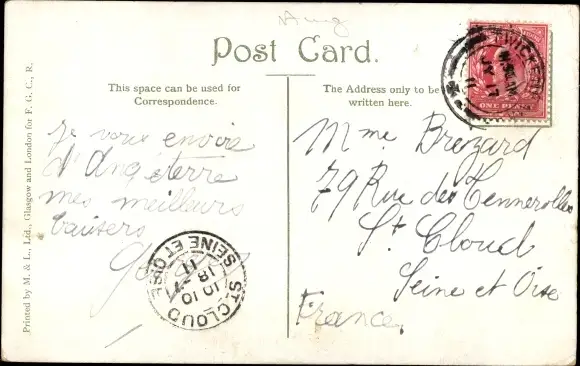 Aug
Post Card.
This space can be used for
Correspondence.
The Address only to be
written here.
Je vous envois
d'Angéterre
mes meilleurs
baisers
Mme Brezard
79 Rue des Tennerolles
St. Cloud
Seine et Oise
France.
Printed by M. & L., Ltd., Glasgow and London for F. G. C., R.
ONE PENNY
JY 17
11
ST-CLOUD
SEINE ET OISE
10 10
18 - 7
11